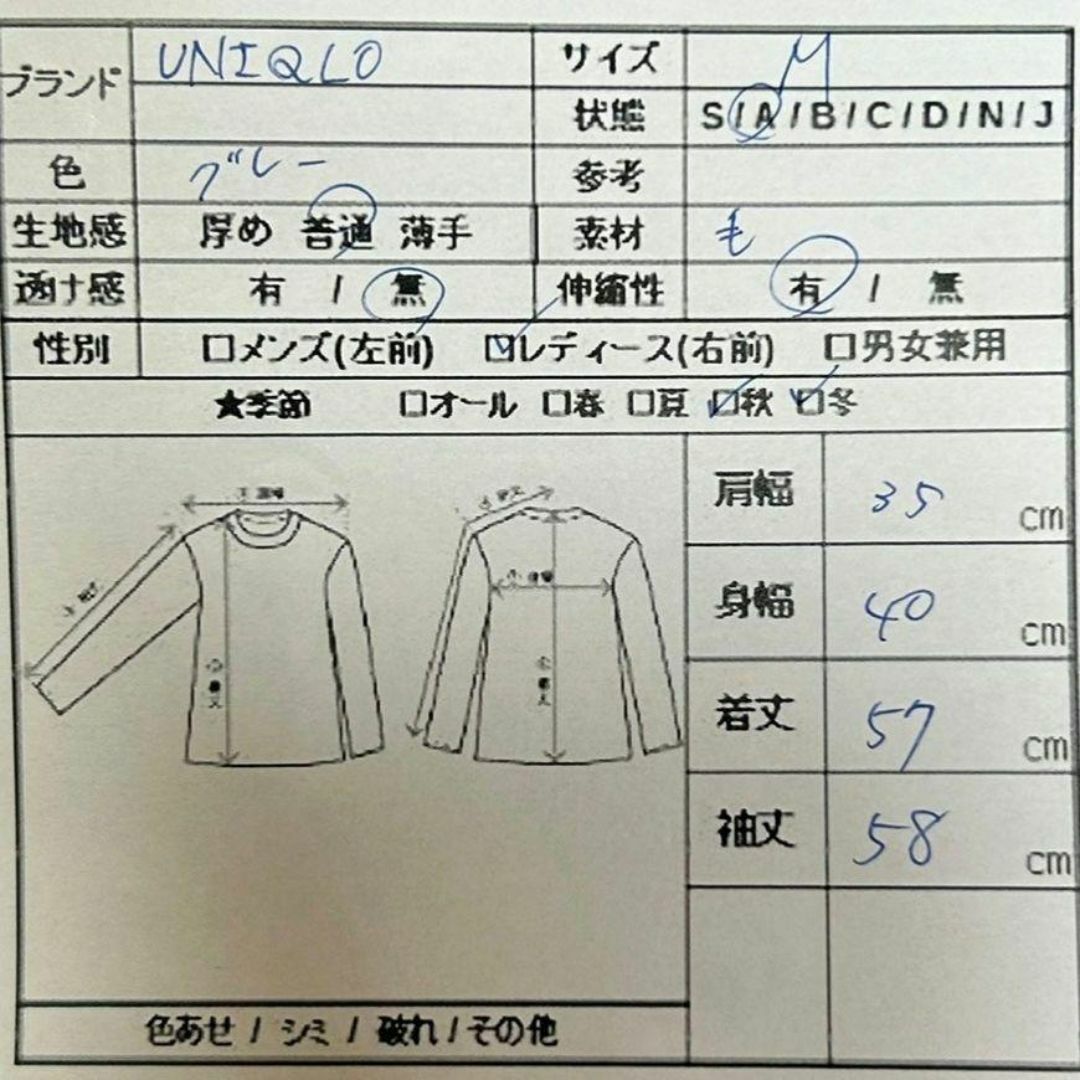 ブランド UNIQLO サイズ M
状態 S/A/B/C/D/N/J
色 グレー 参考
生地感 厚め 普通 薄手 素材 毛
透け感 有 / 無 伸縮性 有 / 無
性別 □メンズ(左前) ☑レディース(右前) □男女兼用
★季節 □オール □春 □夏 ☑秋 ☑冬
肩幅 35 cm
身幅 40 cm
着丈 57 cm
袖丈 58 cm
色あせ / シミ / 破れ / その他